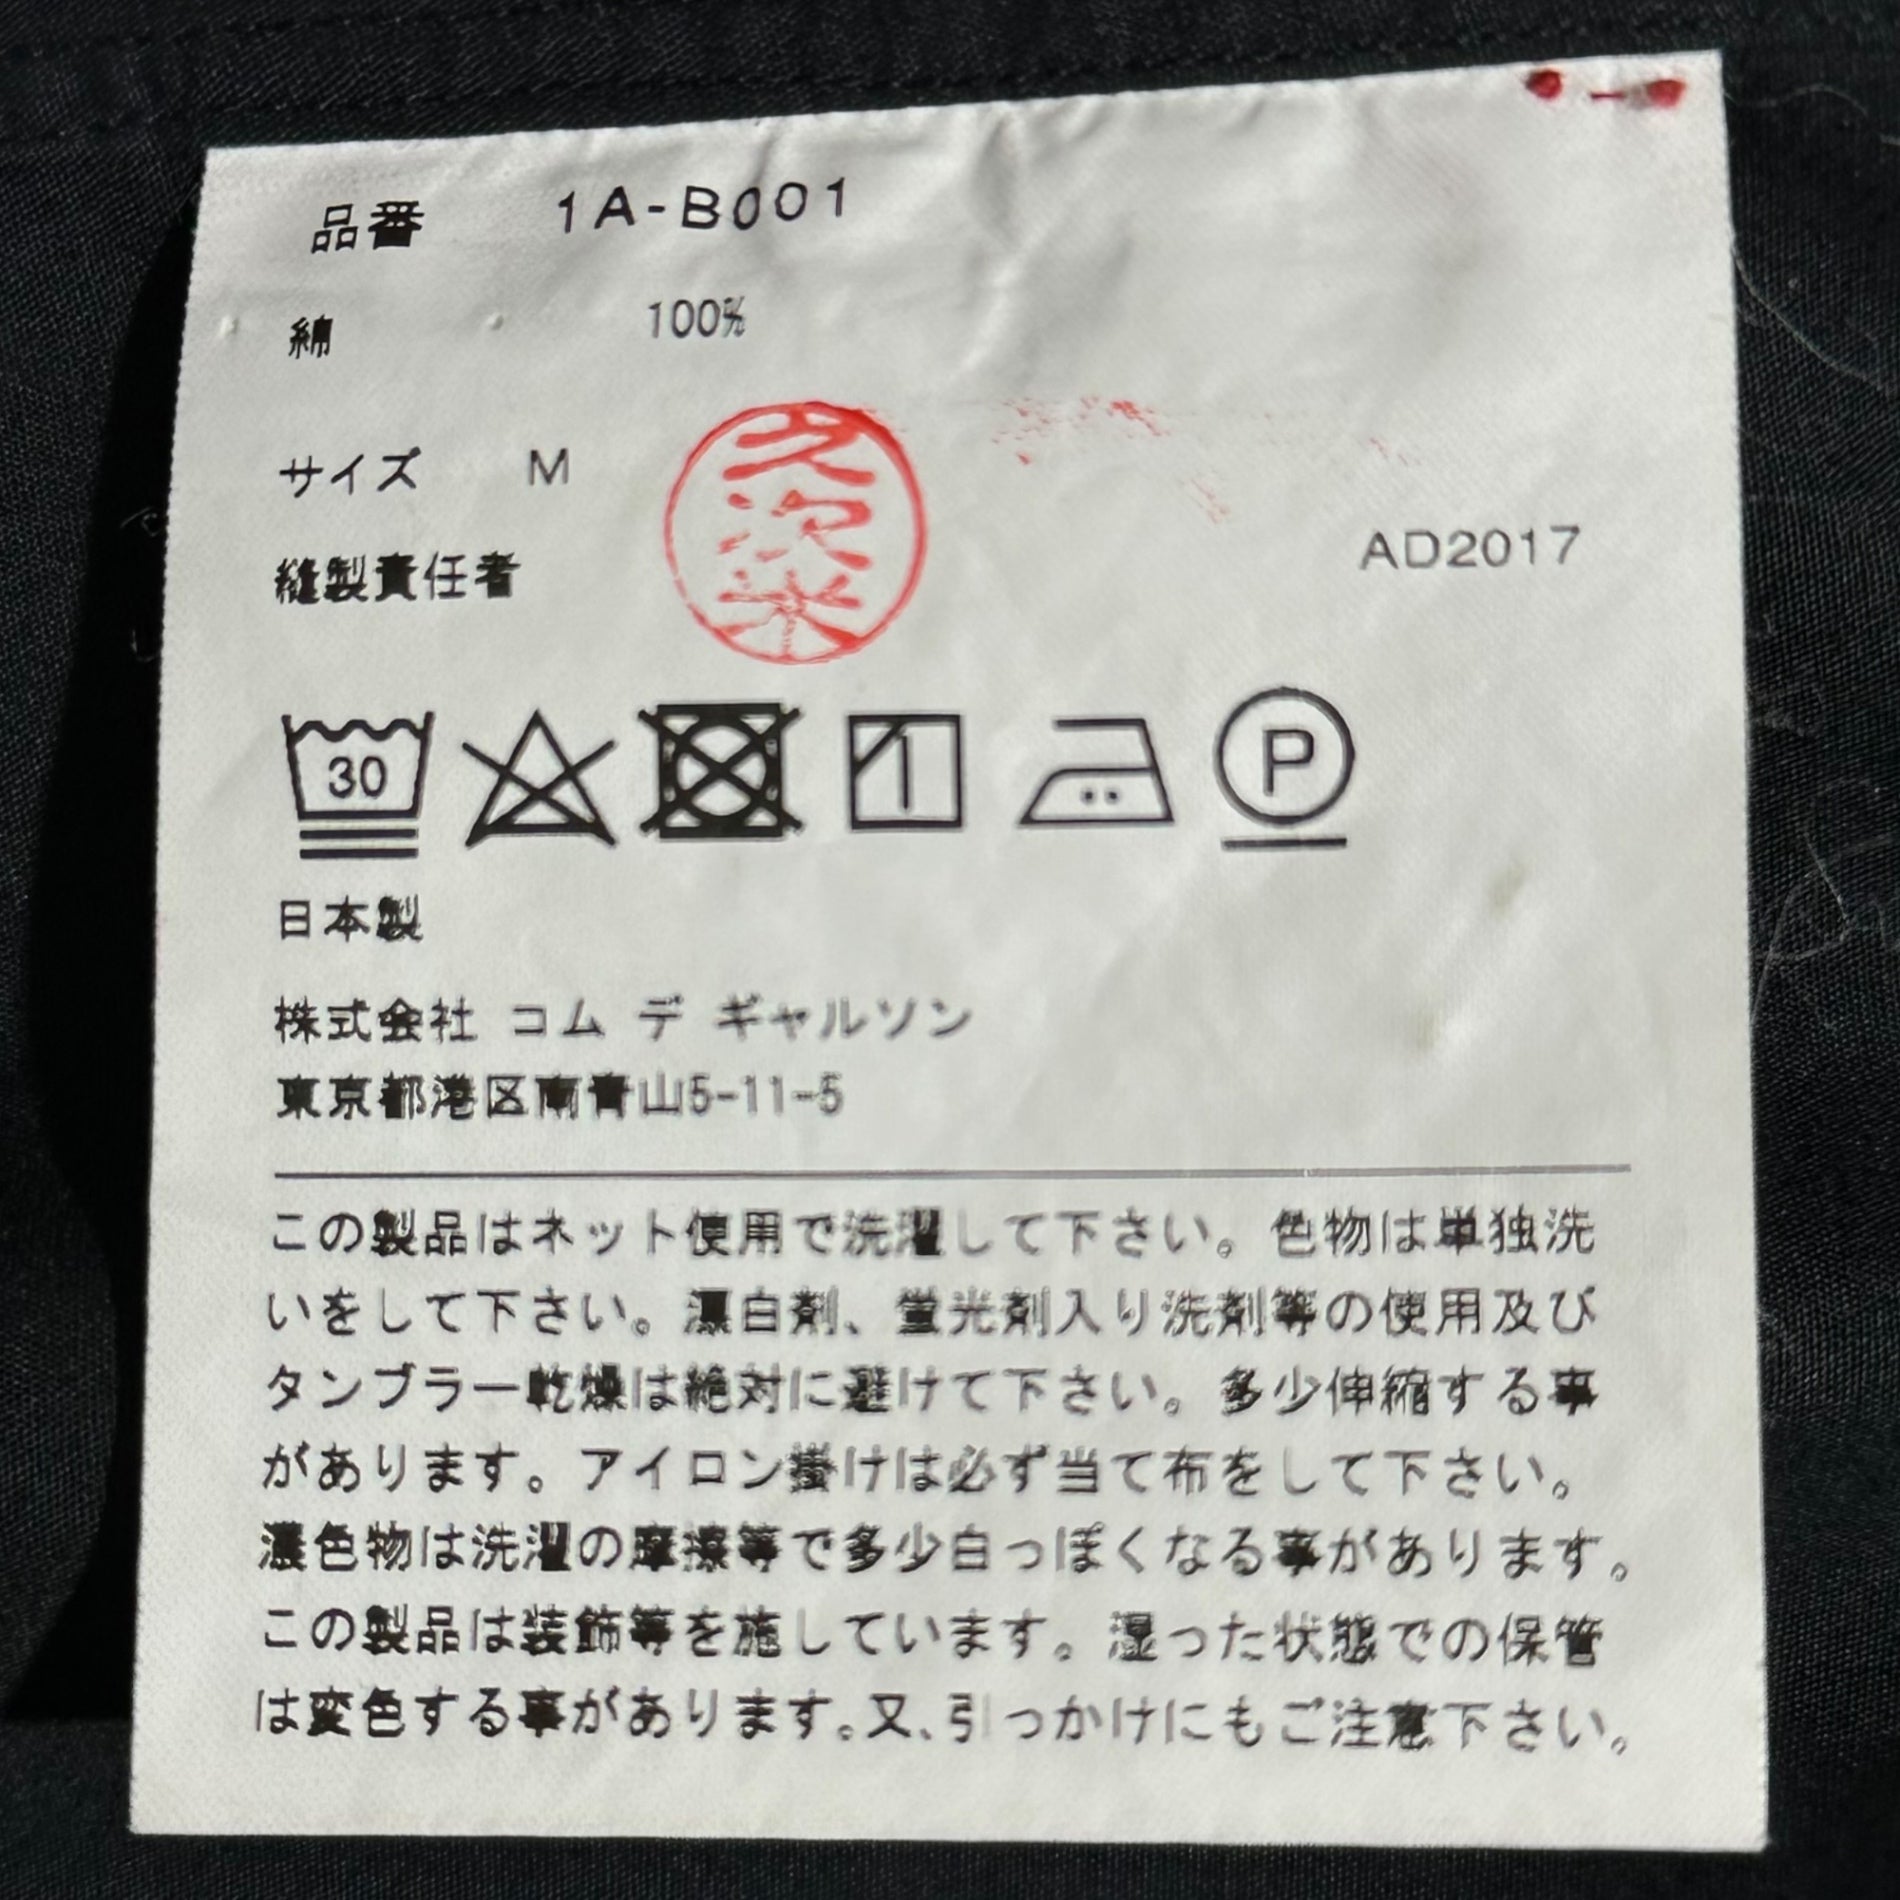 品番 1A-B001
綿 100%
サイズ M
縫製責任者
AD2017
30
P
日本製
株式会社 コム デ ギャルソン
東京都港区南青山5-11-5
この製品はネット使用で洗濯して下さい。色物は単独洗
いをして下さい。漂白剤、蛍光剤入り洗剤等の使用及び
タンブラー乾燥は絶対に避けて下さい。多少伸縮する事
があります。アイロン掛けは必ず当て布をして下さい。
濃色物は洗濯の摩擦等で多少白っぽくなる事があります。
この製品は装飾等を施しています。湿った状態での保管
は変色する事があります。又、引っかけにもご注意下さい。